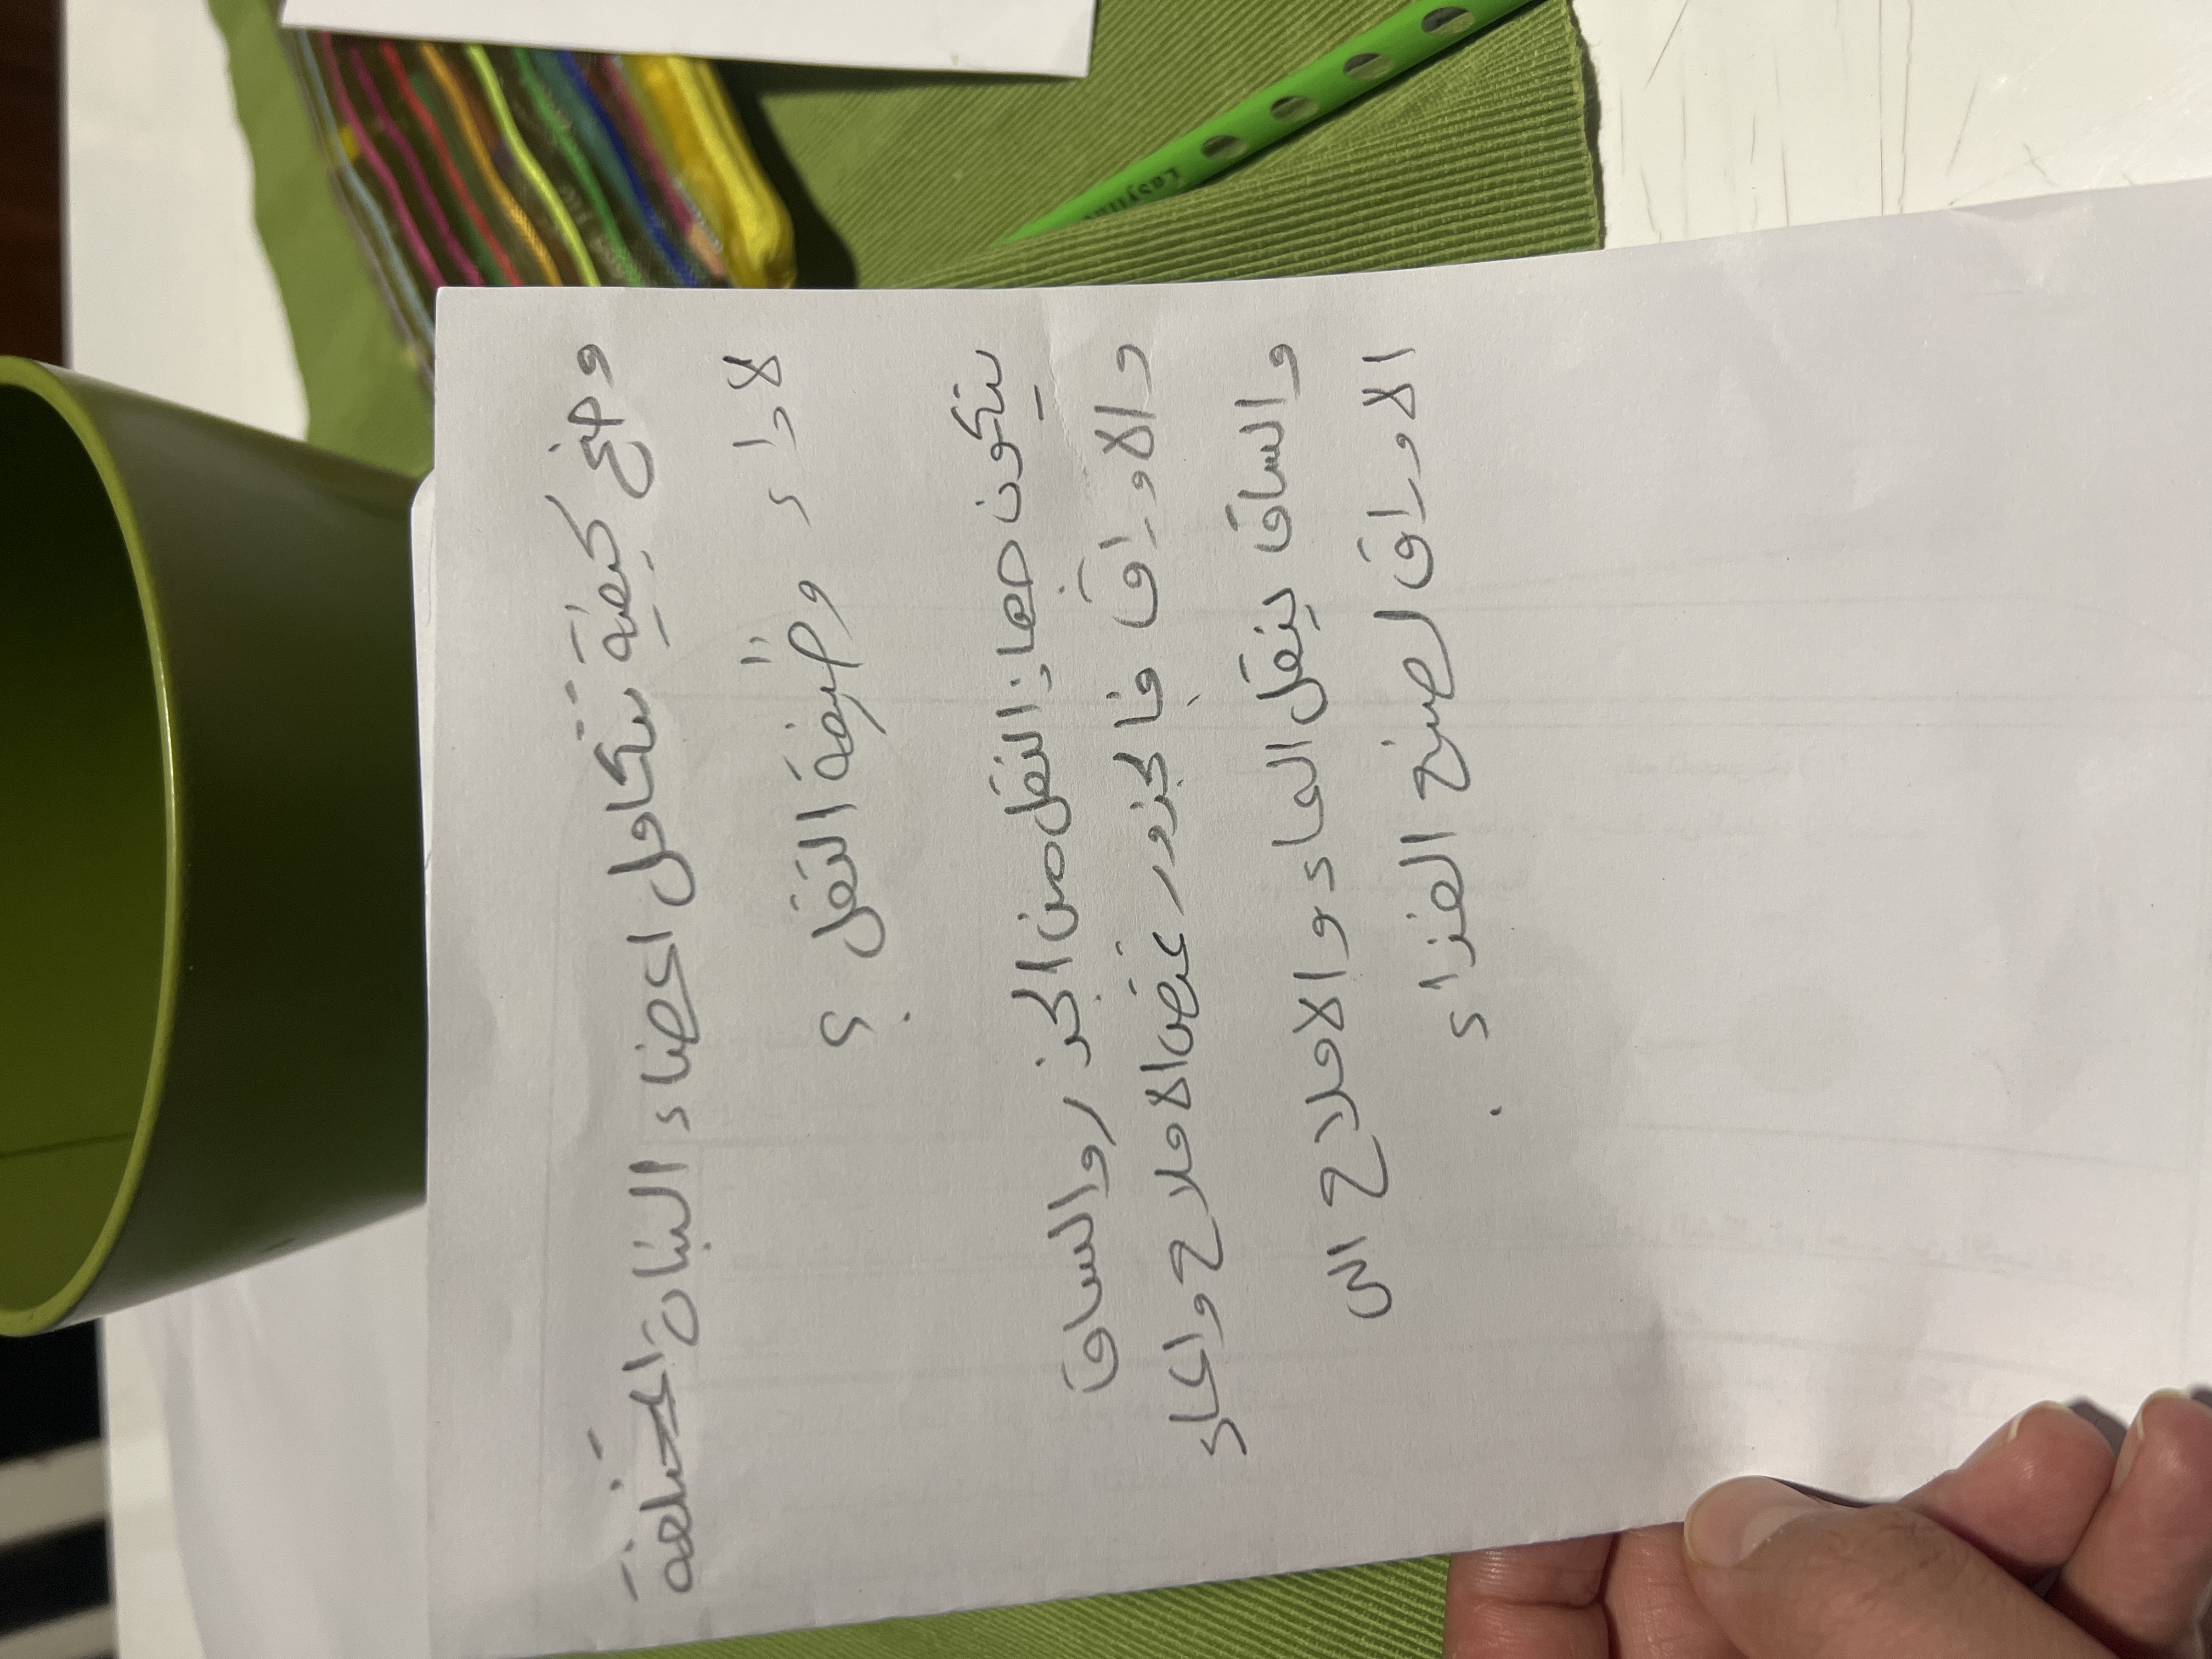 وضح كيفية تتكامل اعضاء النبات المختلفة
لاداء وظيفة النقل ؟
يتكون جهاز النقل من الجذر والساق
والاوراق فالجزور تمتص الاملاح والماء
والساق ينقل الماء والاملاح الى
الاوراق لصنع الغذاء .
Easy